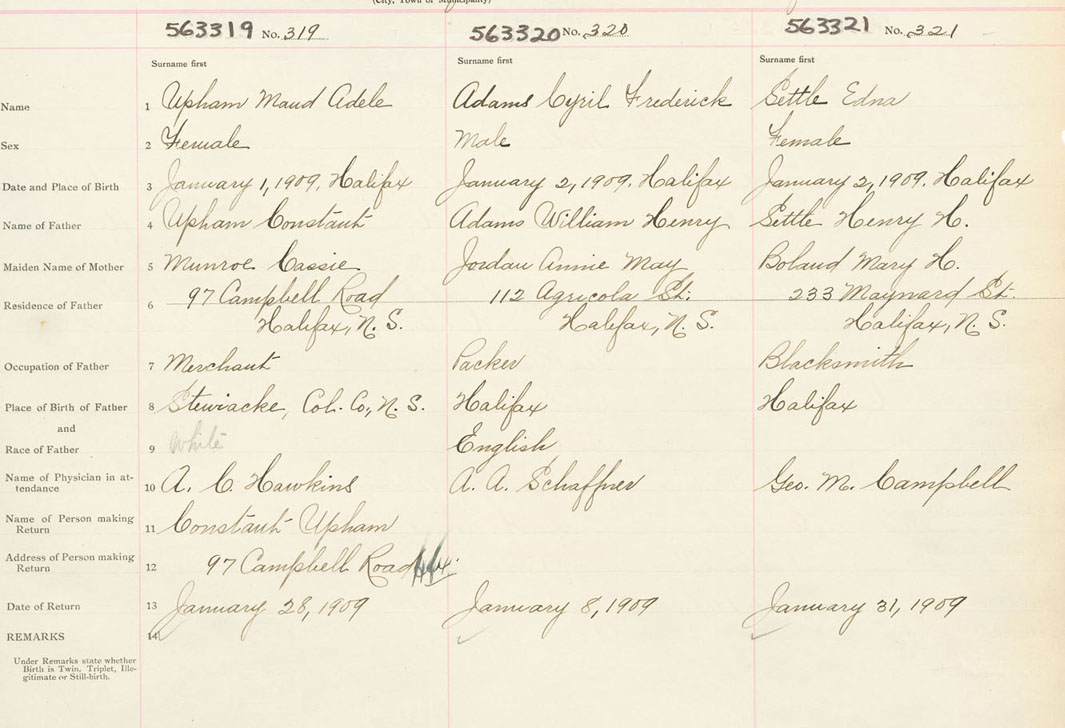 (City, Town or Municipality)
563319 No. 319 563320 No. 320 563321 No. 321
Surname first Surname first Surname first
Name 1 Upham Maud Adele Adams Cyril Frederick Settle Edna
Sex 2 Female Male Female
Date and Place of Birth 3 January 1, 1909. Halifax January 2, 1909. Halifax January 2, 1909. Halifax
Name of Father 4 Upham Constant Adams William Henry Settle Henry H.
Maiden Name of Mother 5 Munroe Cassie Jordan Annie May Boland Mary H.
Residence of Father 6 97 Campbell Road 112 Agricola St. 233 Maynard St.
Halifax, N. S. Halifax, N. S. Halifax, N. S.
Occupation of Father 7 Merchant Packer Blacksmith
Place of Birth of Father 8 Stewiacke, Col. Co., N. S. Halifax Halifax
and
Race of Father 9 White English
Name of Physician in at- 10 A. C. Hawkins A. A. Schaffner Geo. M. Campbell
tendance
Name of Person making 11 Constant Upham
Return
Address of Person making 12 97 Campbell Road Hfx.
Return
Date of Return 13 January 28, 1909 January 8, 1909 January 31, 1909
REMARKS 14
Under Remarks state whether
Birth is Twin, Triplet, Ille-
gitimate or Still-birth.